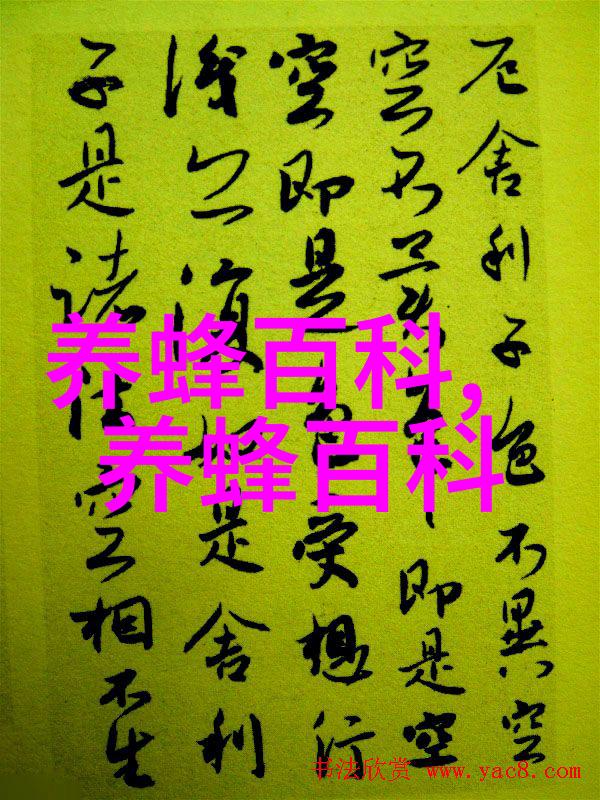 厄舍利子色不異空
空不異色即是空
空即是色受想行
識亦復如是舍利
子是諸法空相不生
养蜂百科,
养蜂百科
书法欣赏 www.yac8.com